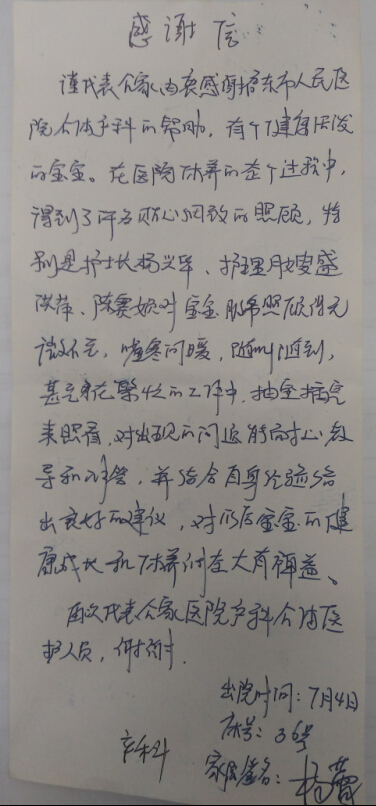 感谢信
谨代表全家由衷感谢启东市人民医
院全体产科的帮助，有个健康活泼
的宝宝。在医院休养的整个过程中，
得到了许多贴心细致的照顾，特
别是护士长杨兴华、护理月嫂盛
洪萍、陈赛娟对宝宝服务照顾得无
微不至，嘘寒问暖，随叫随到，
甚至在繁忙的工作中，抽空插空
来照看，对出现的问题能耐心教
导和解答，并结合自身经验给
出良好的建议，对以后宝宝的健
康成长和休养附在大有裨益、
再次代表全家医院产科全体医
护人员，谢谢.
出院时间：7月4日
床号：36号
产科
家属签名：杨